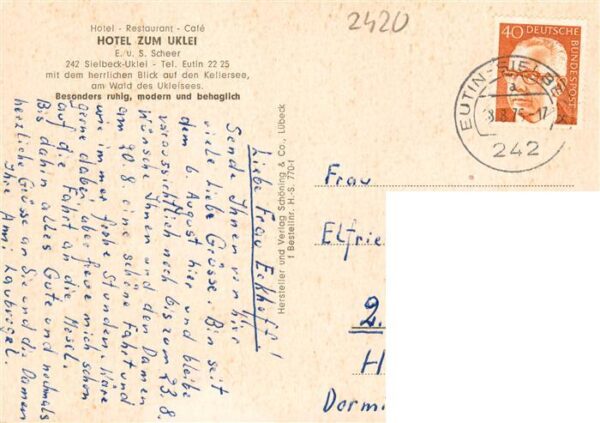 2420
Hotel - Restaurant - Café
HOTEL ZUM UKLEI
E. u. S. Scheer
242 Sielbeck-Uklei - Tel. Eutin 22 25
mit dem herrlichen Blick auf den Kellersee,
am Wald des Ukleisees.
Besonders ruhig, modern und behaglich
40
DEUTSCHE
BUNDESPOST
EUTIN-SIELBE
a
8.8.75-17
242
Liebe Frau Eckhoff!
Sende Ihnen von hier
viele liebe Grüsse. Bin seit
dem 6. August hier und bleibe
voraussichtlich noch bis zum 23.8.
Wünsche Ihnen und den Damen
am 20.8 eine schöne Fahrt und
wie immer frohe Stunden. Wäre
gerne dabei, aber freue mich schon
auf die Fahrt an die Mosel.
Bis dahin alles Gute und nochmals
herzliche Grüsse an Sie und die Damen
Ihre Anni Laubvogel.
Hersteller und Verlag Schöning & Co., Lübeck
f Bestellnr. H.-S. 770-1
Frau
Elfrie
2.
H
Dormi